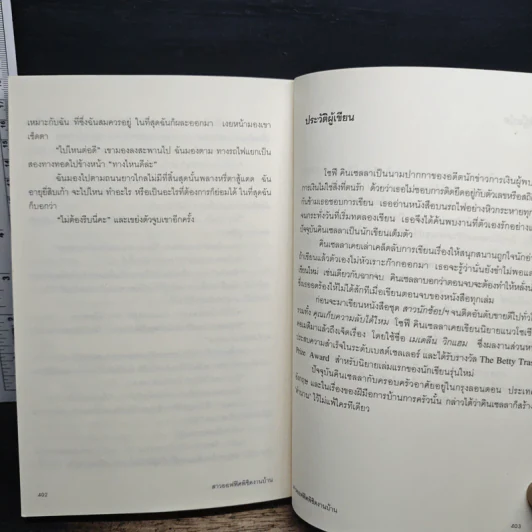 เหมาะกับฉัน ที่ซึ่งฉันสมควรอยู่ ในที่สุดฉันก็ผละออกมา เงยหน้ามองเขา
เช็ดตา
"ไปไหนต่อดี" เขามองลงสะพานไป ฉันมองตาม ทางรถไฟแยกเป็น
สองทางทอดไปข้างหน้า "ทางไหนดีล่ะ"
ฉันมองไปตามถนนยาวไกลไม่มีที่สิ้นสุดนั้นพลางหรี่ตาสู้แดด ฉัน
อายุยี่สิบเก้า จะไปไหน ทำอะไร หรือเป็นอะไรที่ต้องการก็ย่อมได้ ในที่สุดฉัน
ก็บอกว่า
"ไม่ต้องรีบนี่คะ" และเขย่งตัวจูบเขาอีกครั้ง
402
สาวออฟฟิศพิชิตงานบ้าน
ประวัติผู้เขียน
โซฟี คินเซลลาเป็นนามปากกาของอดีตนักข่าวการเงินผู้พบ
การเงินไม่ใช่สิ่งที่ตนรัก ด้วยว่าเธอไม่ชอบการติดยึดอยู่กับตัวเลขหรือสถิ
ข้ามเธอชอบการเขียน เธออ่านหนังสือบนรถไฟอย่างหิวกระหายทุก
จนกระทั่งวันที่เริ่มทดลองเขียน เธอจึงได้ค้นพบงานที่ตัวเองรักอย่าง
ปัจจุบันคินเซลลาเป็นนักเขียนเต็มตัว
คินเซลลาเคยเล่าเคล็ดลับการเขียนเรื่องให้สนุกสนานถูกใจนักอ่า
ถ้าเขียนแล้วตัวเองไม่หัวเราะก๊ากออกมา เธอจะรู้ว่านั่นยังขำไม่พอและ
เขียนใหม่ เช่นเดียวกับฉากจบ คินเซลลาบอกว่าตอนจบจะต้องทำให้หลั่งน้ำ
ร้องให้ไม่ได้สักทีเมื่อเขียนตอนจบของหนังสือทุกเล่ม
ก่อนจะมาเขียนหนังสือชุด สาวนักช้อปฯ จนติดอันดับขายดีไปทั่ว
รวมทั้ง คุณเก็บความลับได้ไหม โซฟี คินเซลลาเคยเขียนนิยายแนวโรแ
มาแล้วถึงเจ็ดเรื่อง โดยใช้ชื่อ เมเดลีน วิกแฮม ซึ่งผลงานส่วนห
ประสบความสำเร็จในระดับเบสต์เซลเลอร์ และได้รับรางวัล The Betty Tras
Prize Award สำหรับนิยายเล่มแรกของนักเขียนรุ่นใหม่
ปัจจุบันคินเซลลากับครอบครัวอาศัยอยู่ในกรุงลอนดอน ประเท
อังกฤษ และในเรื่องของฝีมือการบ้านการครัวนั้น กล่าวได้ว่าคินเซลลาก็สร้าง
ไว้ไม่แพ้ใครทีเดียว
สาวออฟฟิศพิชิตงานบ้าน
403